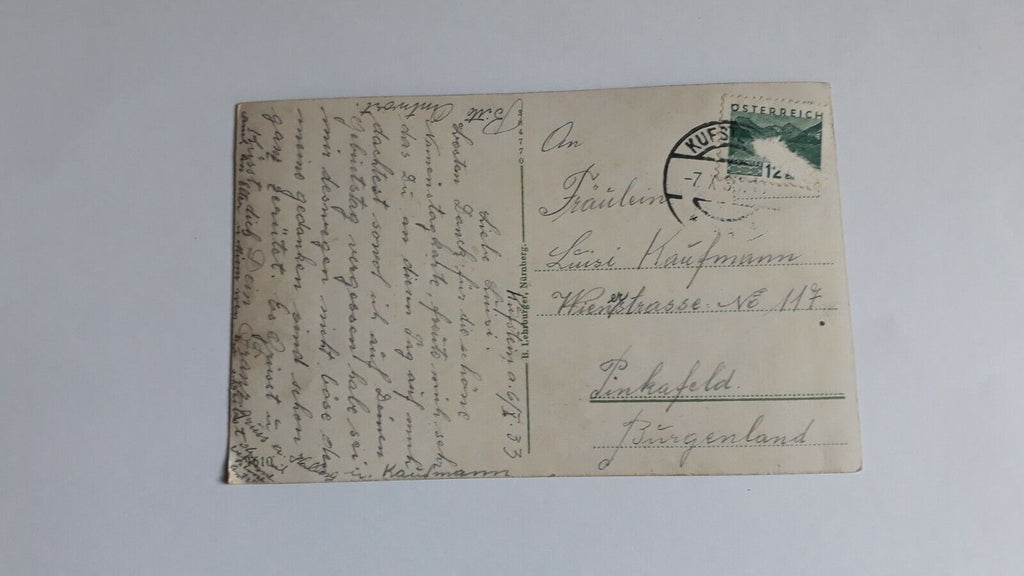 Kufstein a. 6/X. 33
Liebe Luisi!
Besten Dank für die schöne
Namenstagkarte freute mich sehr
das Du an diesen Tag auf mich
dachtest somol ich auf Deinen
Geburtstag vergessen habe sei
mir deswegen nicht böse den
meine gedanken sind schon
ganz zerütet. Es Grüst u.
küsst dich Dein
Franz
Kaufmann
Bitte Antwort.
B. Lehrburger, Nürnberg.
38470
ÖSTERREICH
12
KUFS
-7. X
An
Fräulein
Luisi Kaufmann
Wienerstrasse Nº 117
Pinkafeld.
Burgenland